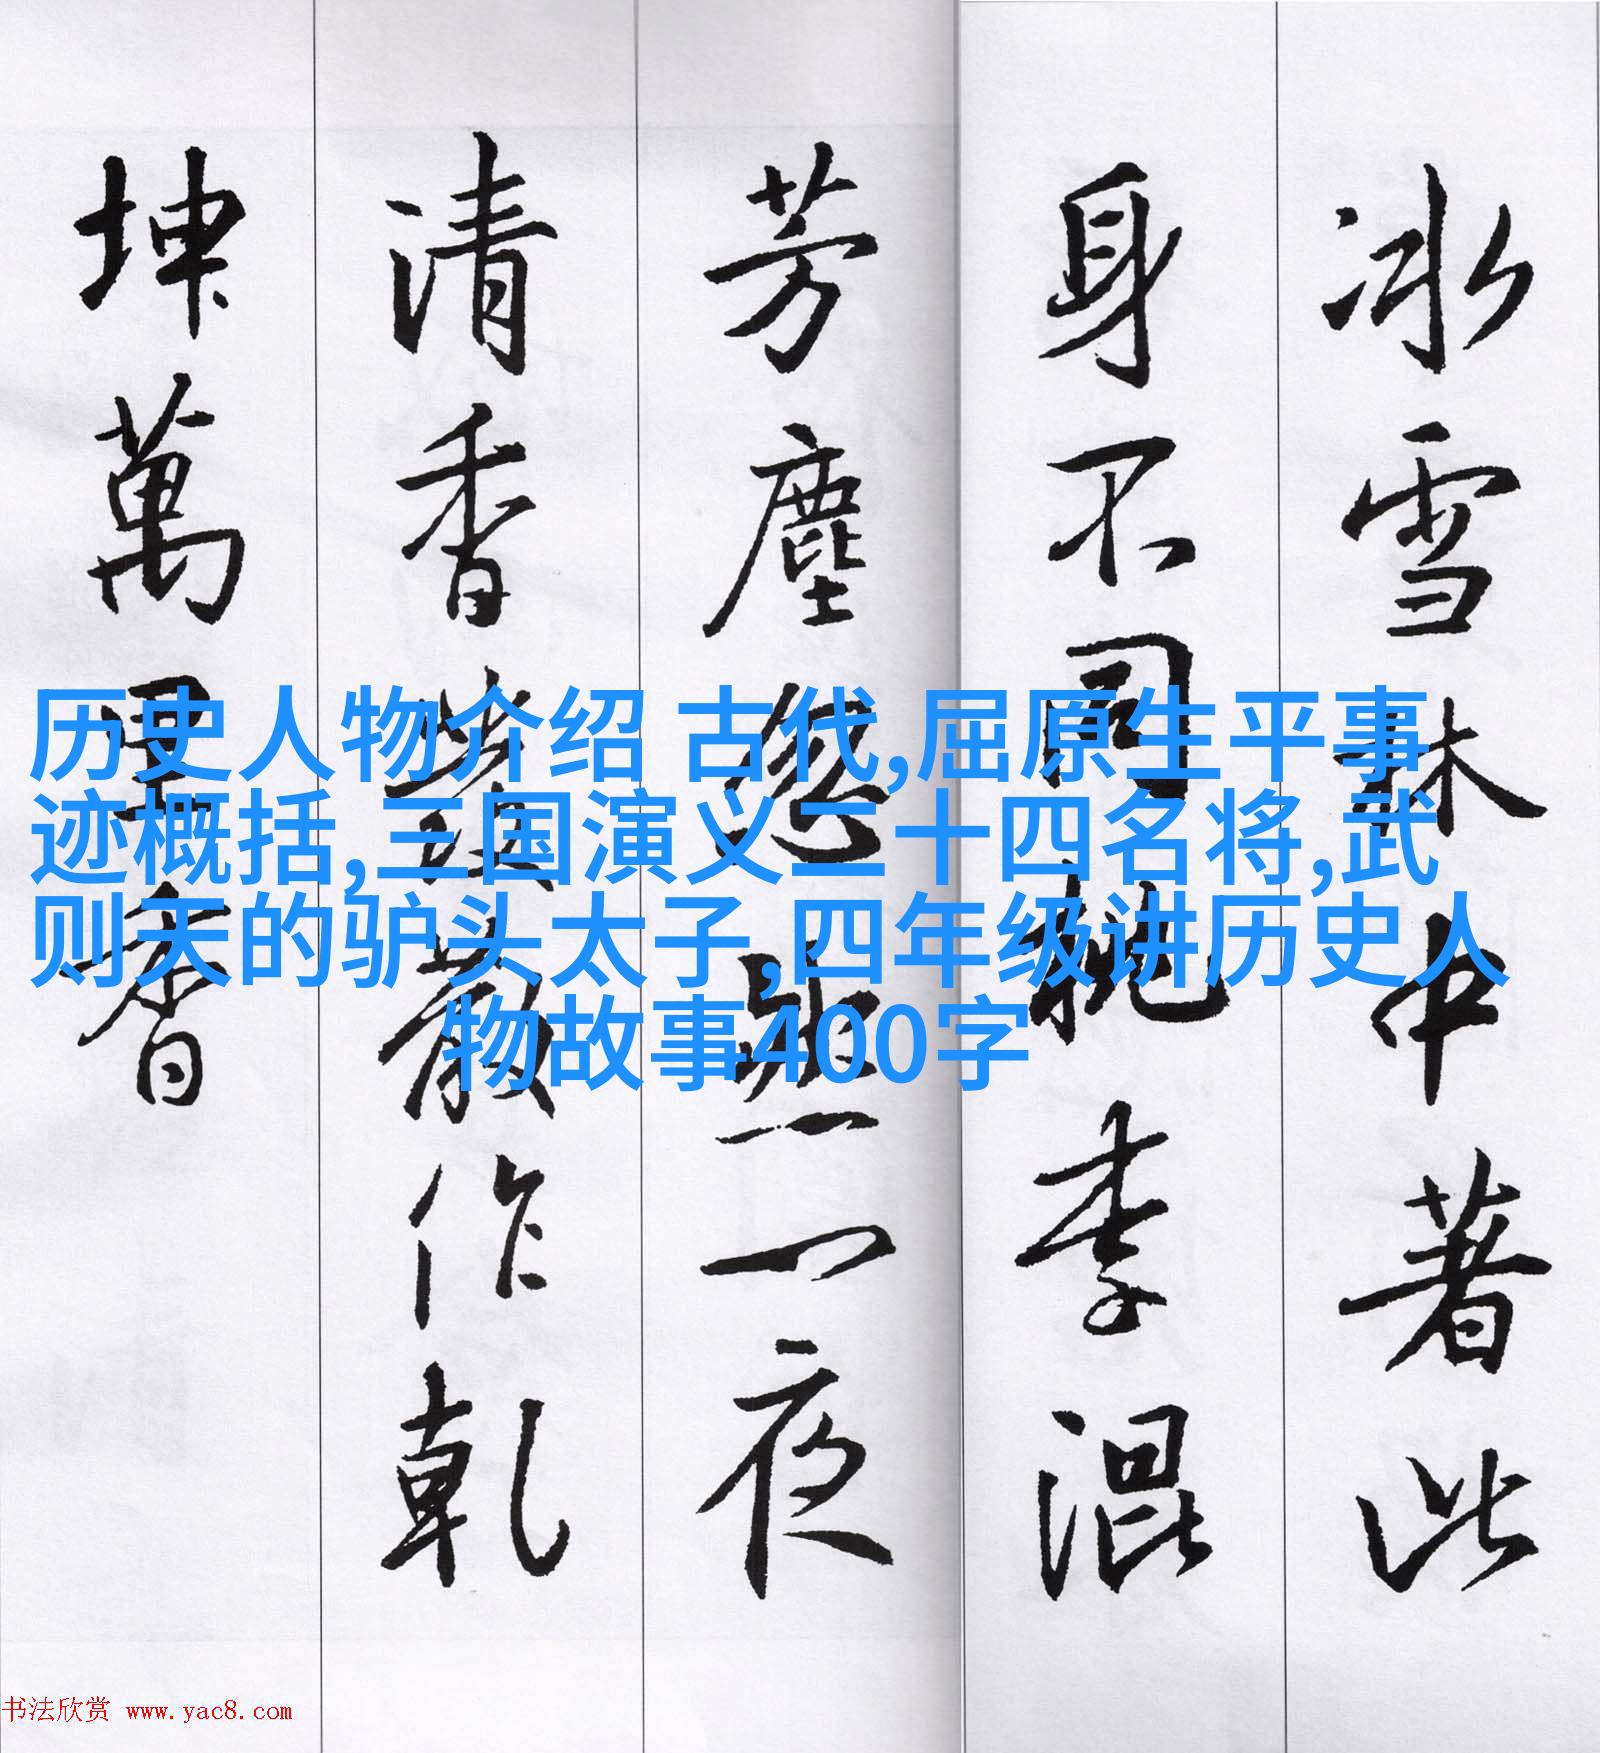 冰雪林中著此
身不同桃李混
芳塵忽然一夜
清香發散作乾
坤萬里春
历史人物介绍 古代,屈原生平事
迹概括,三国演义二十四名将,武
则天的驴头太子,四年级讲历史人
物故事400字
书法欣赏 www.yac8.com